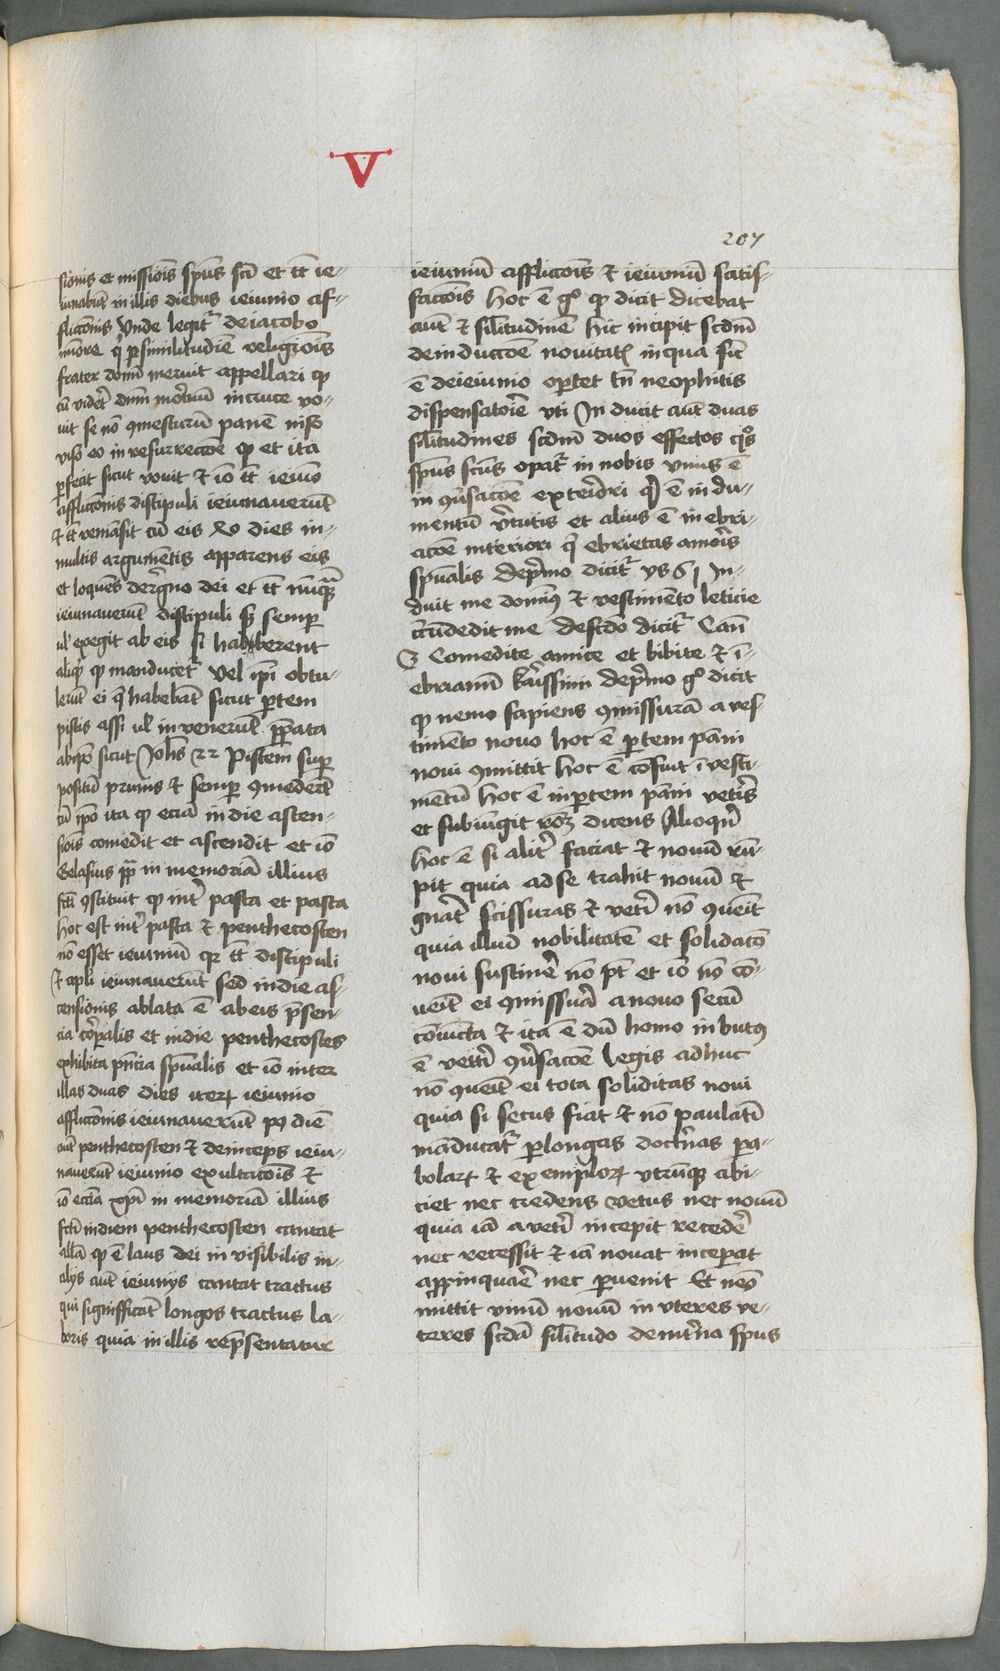 V
207
sionis et missiōis spūs scī et tūc ie-
iunabūt in illis diebus ieiunio af-
flictionis Unde legitr de iacobo
minore qui per similitudinē religiōis
frater domini meruit appellari qd
cū videret dnm mortuū in cruce vo-
uit se nō comesturum panē nisi
viso eo in resurrectōe qd et ita
perfecit sicut vouit et io tūc ieiunio
afflictionis discipuli ieiunaverūt
et tūc remāsit cū eis xl dies in
multis argumētis apparens eis
et loquēs de regno dei et tūc nūquā
ieiunaverūt discipuli sed semper
vel exegit ab eis si haberent
aliquid qd manducetr vel ipī obtu-
lerūt ei qd habebāt sicut partem
piscis assi vel invenerūt parata
ab ipso sicut Johīs 22 Piscem super
positū prunis et semper comederūt
cū ipo ita qd eciā in die ascen-
siōis comedit et ascendit et iō
Gelasius papa in memoriā illius
facti constituit qd inter pasca et pasca
hoc est inter pasca et penthecosten
nō esset ieiuniū quia tūc discipuli
et apli ieiunaverūt sed in die as-
censionis ablata ē ab eis presen-
cia corporalis et in die penthecostes
exhibita presencia spūalis et iō inter
illas duas dies iterū ieiunio
afflictionis ieiunaverūt post diē
autē penthecosten et deinceps ieiu-
naverūt ieiunio exultacōis et
iō eciā xpī in memoriā illius
facti in diem penthecosten cantat
alla qd ē laus dei invisibilis in
alijs autē ieiunijs cantat tractus
qui significāt longos tractus la-
boris quia in illis representatur
ieiuniū afflictōis et ieiuniū satis-
factōis hoc ē go qd dicit dicebat
autē et similitudinē hic incipit scdm
de inductōe novitatis in qua sic
ē de ieiunio oportet tn neophitis
dispensatorie uti Inducit autē duas
similitudines scdm duos effectos quos
spūs scūs operatr in nobis unus ē
in conversacōe exteriori qd ē indu-
mentū virtutis et alius ē in ebri-
acōe interiori que ebrietas amoris
spūalis de primo dicitr ys 61 In-
duit me dominus et vestimēto leticie
circumdedit me de scdo dicitr Can
5 Comedite amice et bibite et in-
ebriamini karissimi de primo go dicit
qd nemo sapiens comissurā a ves-
timēto novo hoc ē partem pani
novi comittit hoc ē consuit in vesti-
mētū hoc ē in partem pani veteris
et subiungit rōem dicens Alioquin
hoc ē si aliter faciat et novū rū-
pit quia ad se trahit novū et
gnāt scissuras et veteri nō conveit
quia illum nobilitatē et solidatō
novi sustinere nō pōt et iō nō cō-
veit ei comissura a novo secū
coniuncta et ita ē dū homo inbutus
ē veteri conversacōe legis adhuc
nō conveit ei tota soliditas novi
quia si secus fiat et nō paulatī
manducatr per longas doctrinas pa-
bolarū et exemplorū utrūque abi-
ciet nec credens vetus nec novū
quia iā a veteri incepit recedere
nec recessit et iā novat inceperat
appinquare nec pervenit Et nemo
mittit vinū novū in uteres ve-
teres scda similitudo de interna spūs